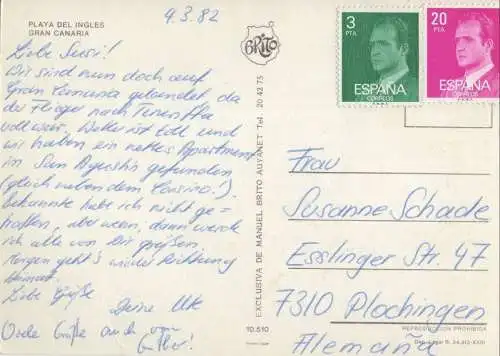 PLAYA DEL INGLES
GRAN CANARIA
9.3.82
Liebe Susi!
Wir sind nun doch auf
Gran Canaria gelandet, da
der Flieger nach Teneriffa
voll war. Wetter ist toll und
wir haben ein nettes Apartment
in San Agustin gefunden
(gleich neben dem Casino!).
Bekannte habe ich nicht ge=
troffen, aber wenn, dann werde
ich alle von Dir grüßen.
Morgen geht's wieder Richtung
Heimat.
Liebe Grüße
Deine
Viele Grüße auch von
BRITO
EXCLUSIVA DE MANUEL BRITO AUYANET Tel. 20 42 75
10.510
3
PTA
ESPAÑA
CORREOS
20
PTA
ESPAÑA
CORREOS
Frau
Susanne Schade
Esslinger Str. 47
7310 Plochingen
REPRODUCCION PROHIBIDA
Alemaña